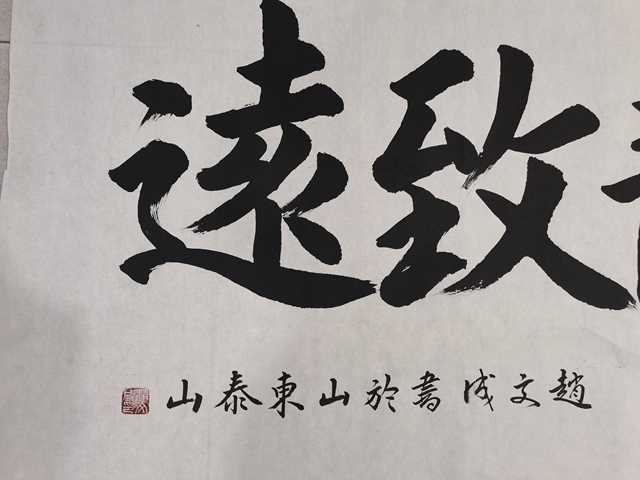 致遠
趙文成書於山東泰山